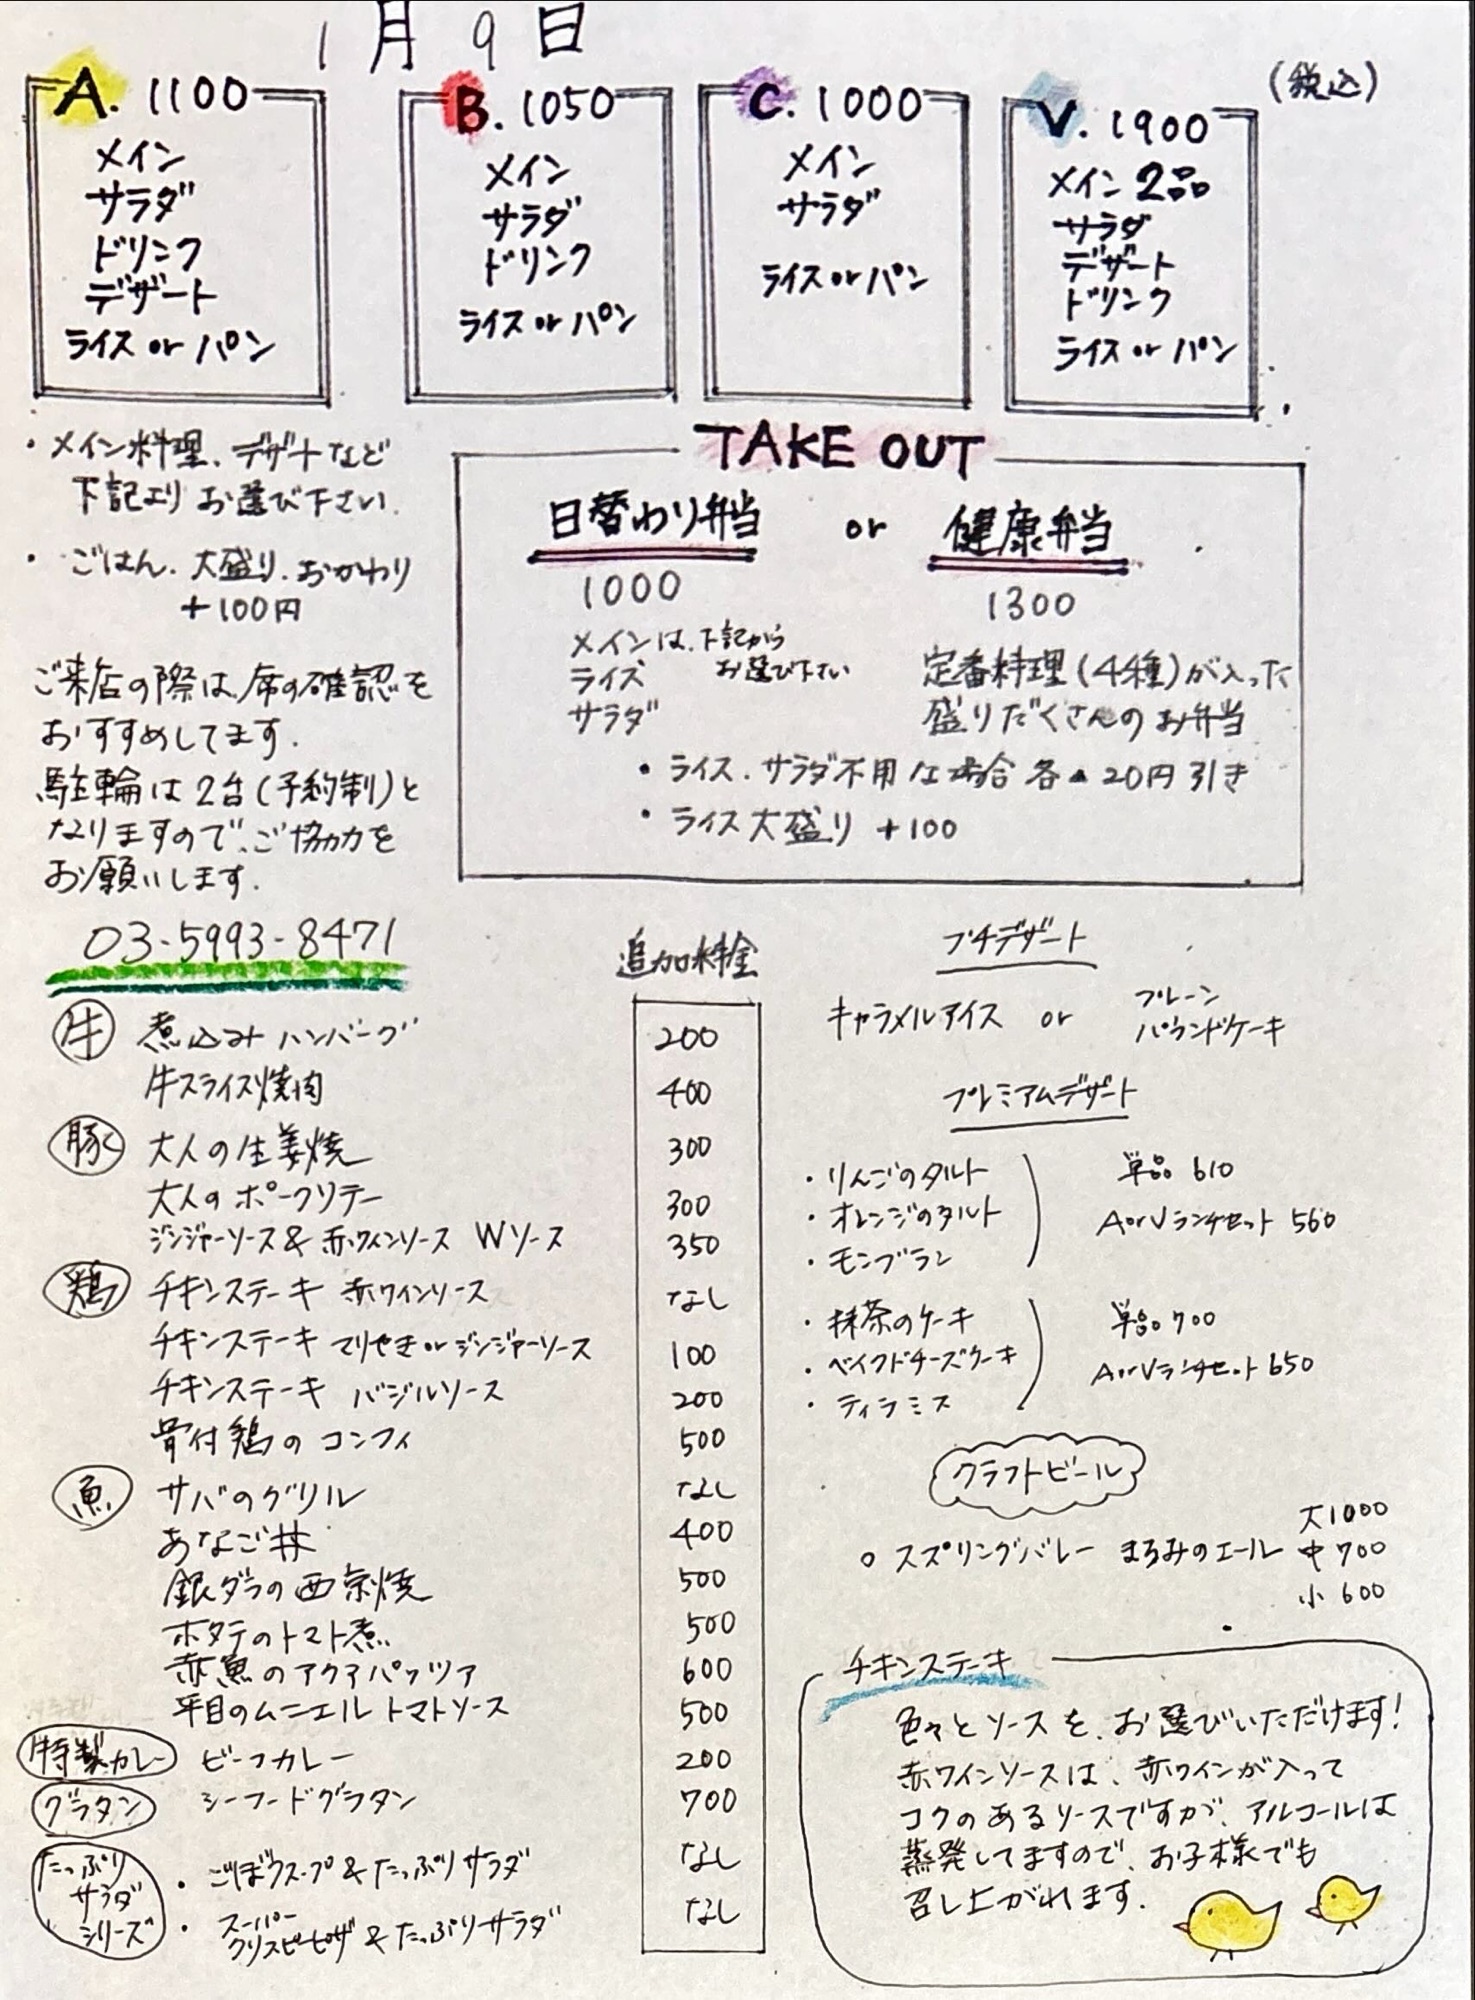 1月9日
(税込)
A. 1100
メイン
サラダ
ドリンク
デザート
ライス or パン
B. 1050
メイン
サラダ
ドリンク
ライス or パン
C. 1000
メイン
サラダ
ライス or パン
V. 1900
メイン 2品
サラダ
デザート
ドリンク
ライス or パン
・メイン料理、デザートなど
下記より お選び下さい.
・ごはん、大盛り、おかわり
+100円
ご来店の際は、席の確認を
おすすめしてます.
駐輪は2台(予約制)と
なりますので、ご協力を
お願いします.
03-5993-8471
TAKE OUT
日替わり弁当 or 健康弁当
1000
メインは、下記から
お選び下さい
ライス
サラダ
1300
定番料理(4種)が入った
盛りだくさんのお弁当
・ライス、サラダ不用な場合 各▲20円引き
・ライス大盛り +100
追加料金
牛 煮込みハンバーグ 200
牛スライス焼肉 400
豚 大人の生姜焼 300
大人のポークソテー 300
ジンジャーソース & 赤ワインソース Wソース 350
鶏 チキンステーキ 赤ワインソース なし
チキンステーキ てりやき or ジンジャーソース 100
チキンステーキ バジルソース 200
骨付鶏のコンフィ 500
魚 サバのグリル なし
あなご丼 400
銀ダラの西京焼 500
ホタテのトマト煮 500
赤魚のアクアパッツァ 600
平目のムニエル トマトソース 500
特製カレー ビーフカレー 200
グラタン シーフードグラタン 700
たっぷり
サラダ
シリーズ
・ごぼうスープ & たっぷりサラダ なし
・スーパー
クリスピーピザ & たっぷりサラダ なし
プチデザート
キャラメルアイス or プレーン
パウンドケーキ
プレミアムデザート
・りんごのタルト
・オレンジのタルト
・モンブラン
単品 610
AorVランチセット 560
・抹茶のケーキ
・ベイクドチーズケーキ
・ティラミス
単品 700
AorVランチセット 650
クラフトビール
○ スプリングバレー まろみのエール
大1000
中700
小600
チキンステーキ
色々とソースを、お選びいただけます!
赤ワインソースは、赤ワインが入って
コクのあるソースですが、アルコールは
蒸発してますので、お子様でも
召し上がれます.